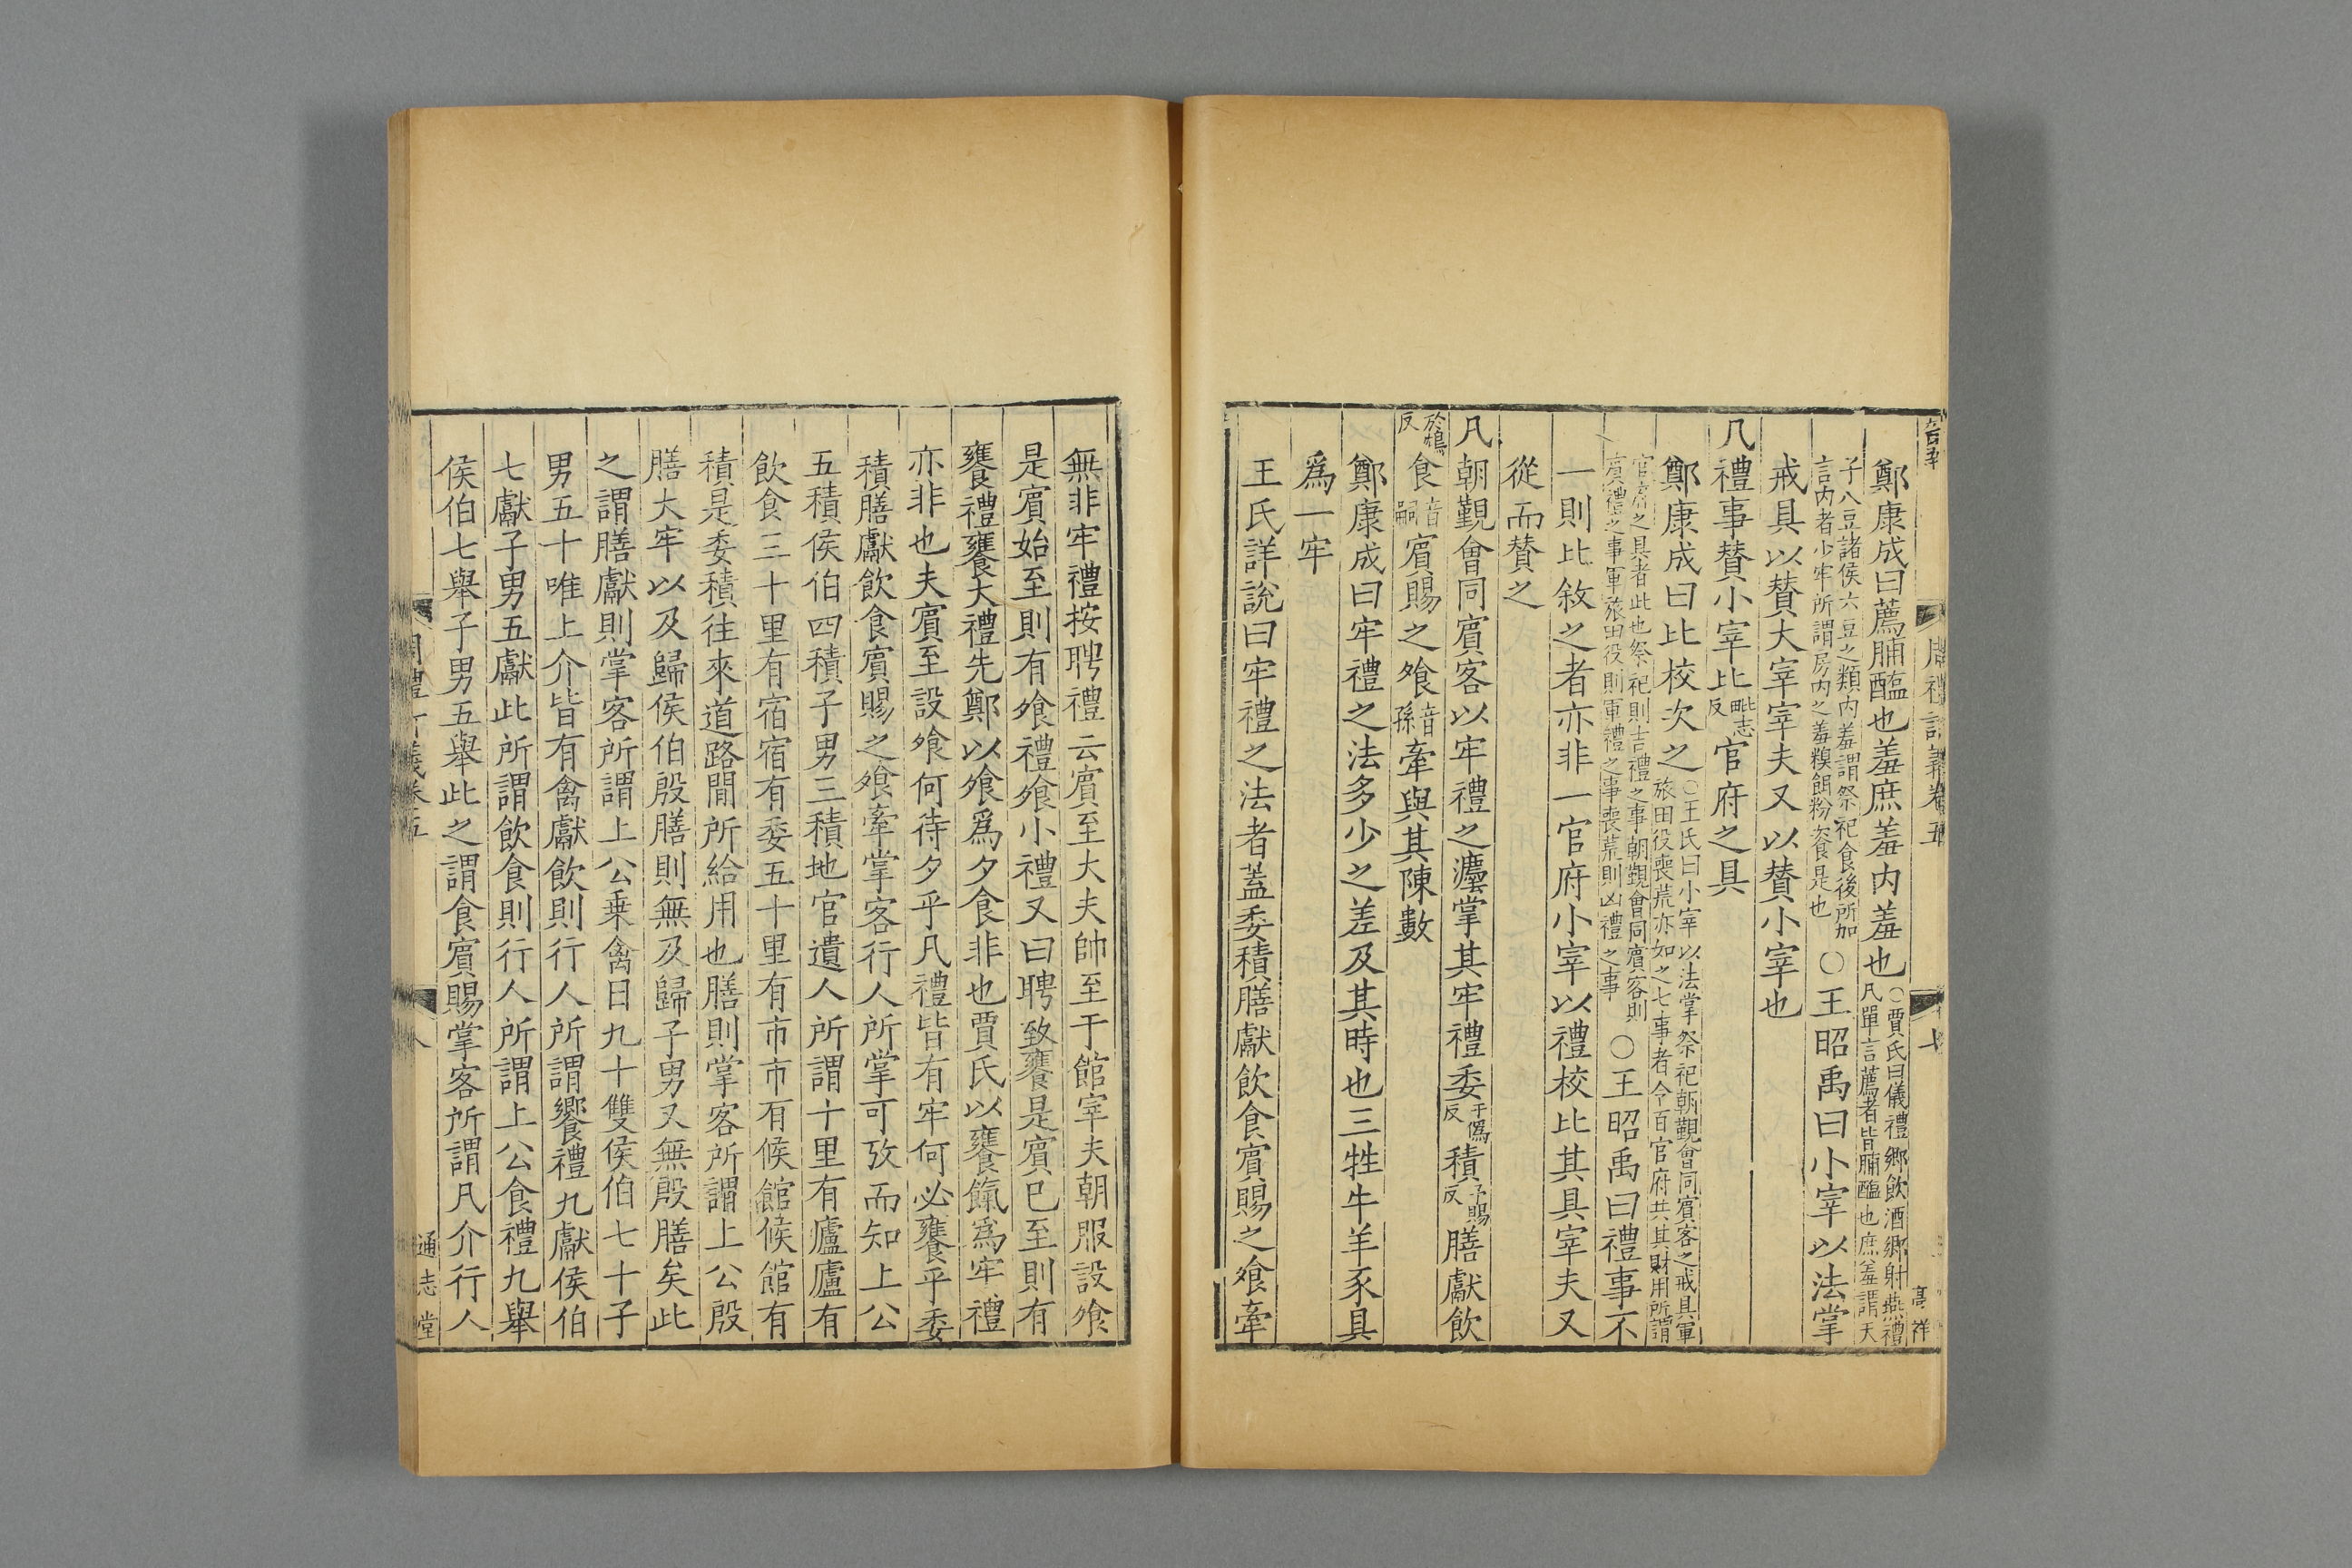 鄭康成曰薦脯醢也羞庶羞内羞也○賈氏曰儀禮鄉飲酒鄉射燕禮凡單言薦者皆脯醢也庶羞謂天
子八豆諸侯六豆之類内羞謂祭祀食後所加言内者少牢所謂房内之羞糗餌粉餈是也○王昭禹曰小宰以法掌
戒具以賛大宰宰夫又以賛小宰也
凡禮事賛小宰比毗志反官府之具
鄭康成曰比校次之○王氏曰小宰以法掌祭祀朝覲會同賔客之戒具軍旅田役喪荒亦如之七事者令百官府共其財用所謂
官府之具者此也祭祀則吉禮之事朝覲會同賔客則賔禮之事軍旅田役則軍禮之事喪荒則凶禮之事○王昭禹曰禮事不
一則比敘之者亦非一官府小宰以禮校比其具宰夫又
從而賛之
凡朝覲會同賔客以牢禮之灋掌其牢禮委于僞反積子賜反膳獻飲
於鴆反食音嗣賔賜之飧音孫牽與其陳數
鄭康成曰牢禮之法多少之差及其時也三牲牛羊豕具
爲一牢
王氏詳說曰牢禮之法者蓋委積膳獻飲食賔賜之飧牽
周禮訂義卷五
七
亭祥
無非牢禮按聘禮云賔至大夫帥至于館宰夫朝服設飧
是賔始至則有飧禮飧小禮又曰聘致饔是賔已至則有
饔禮饔大禮先鄭以飧爲夕食非也賈氏以饔餼爲牢禮
亦非也夫賔至設飧何待夕乎凡禮皆有牢何必饔乎委
積膳獻飲食賔賜之飧牽掌客行人所掌可攷而知上公
五積侯伯四積子男三積地官遺人所謂十里有廬廬有
飲食三十里有宿宿有委五十里有市市有候館候館有
積是委積往來道路閒所給用也膳則掌客所謂上公殷
膳大牢以及歸侯伯殷膳則無及歸子男又無殷膳矣此
之謂膳獻則掌客所謂上公乗禽日九十雙侯伯七十子
男五十唯上介皆有禽獻飲則行人所謂饗禮九獻侯伯
七獻子男五獻此所謂飲食則行人所謂上公食禮九舉
侯伯七舉子男五舉此之謂食賔賜掌客所謂凡介行人
周禮訂義卷五
八
通志堂